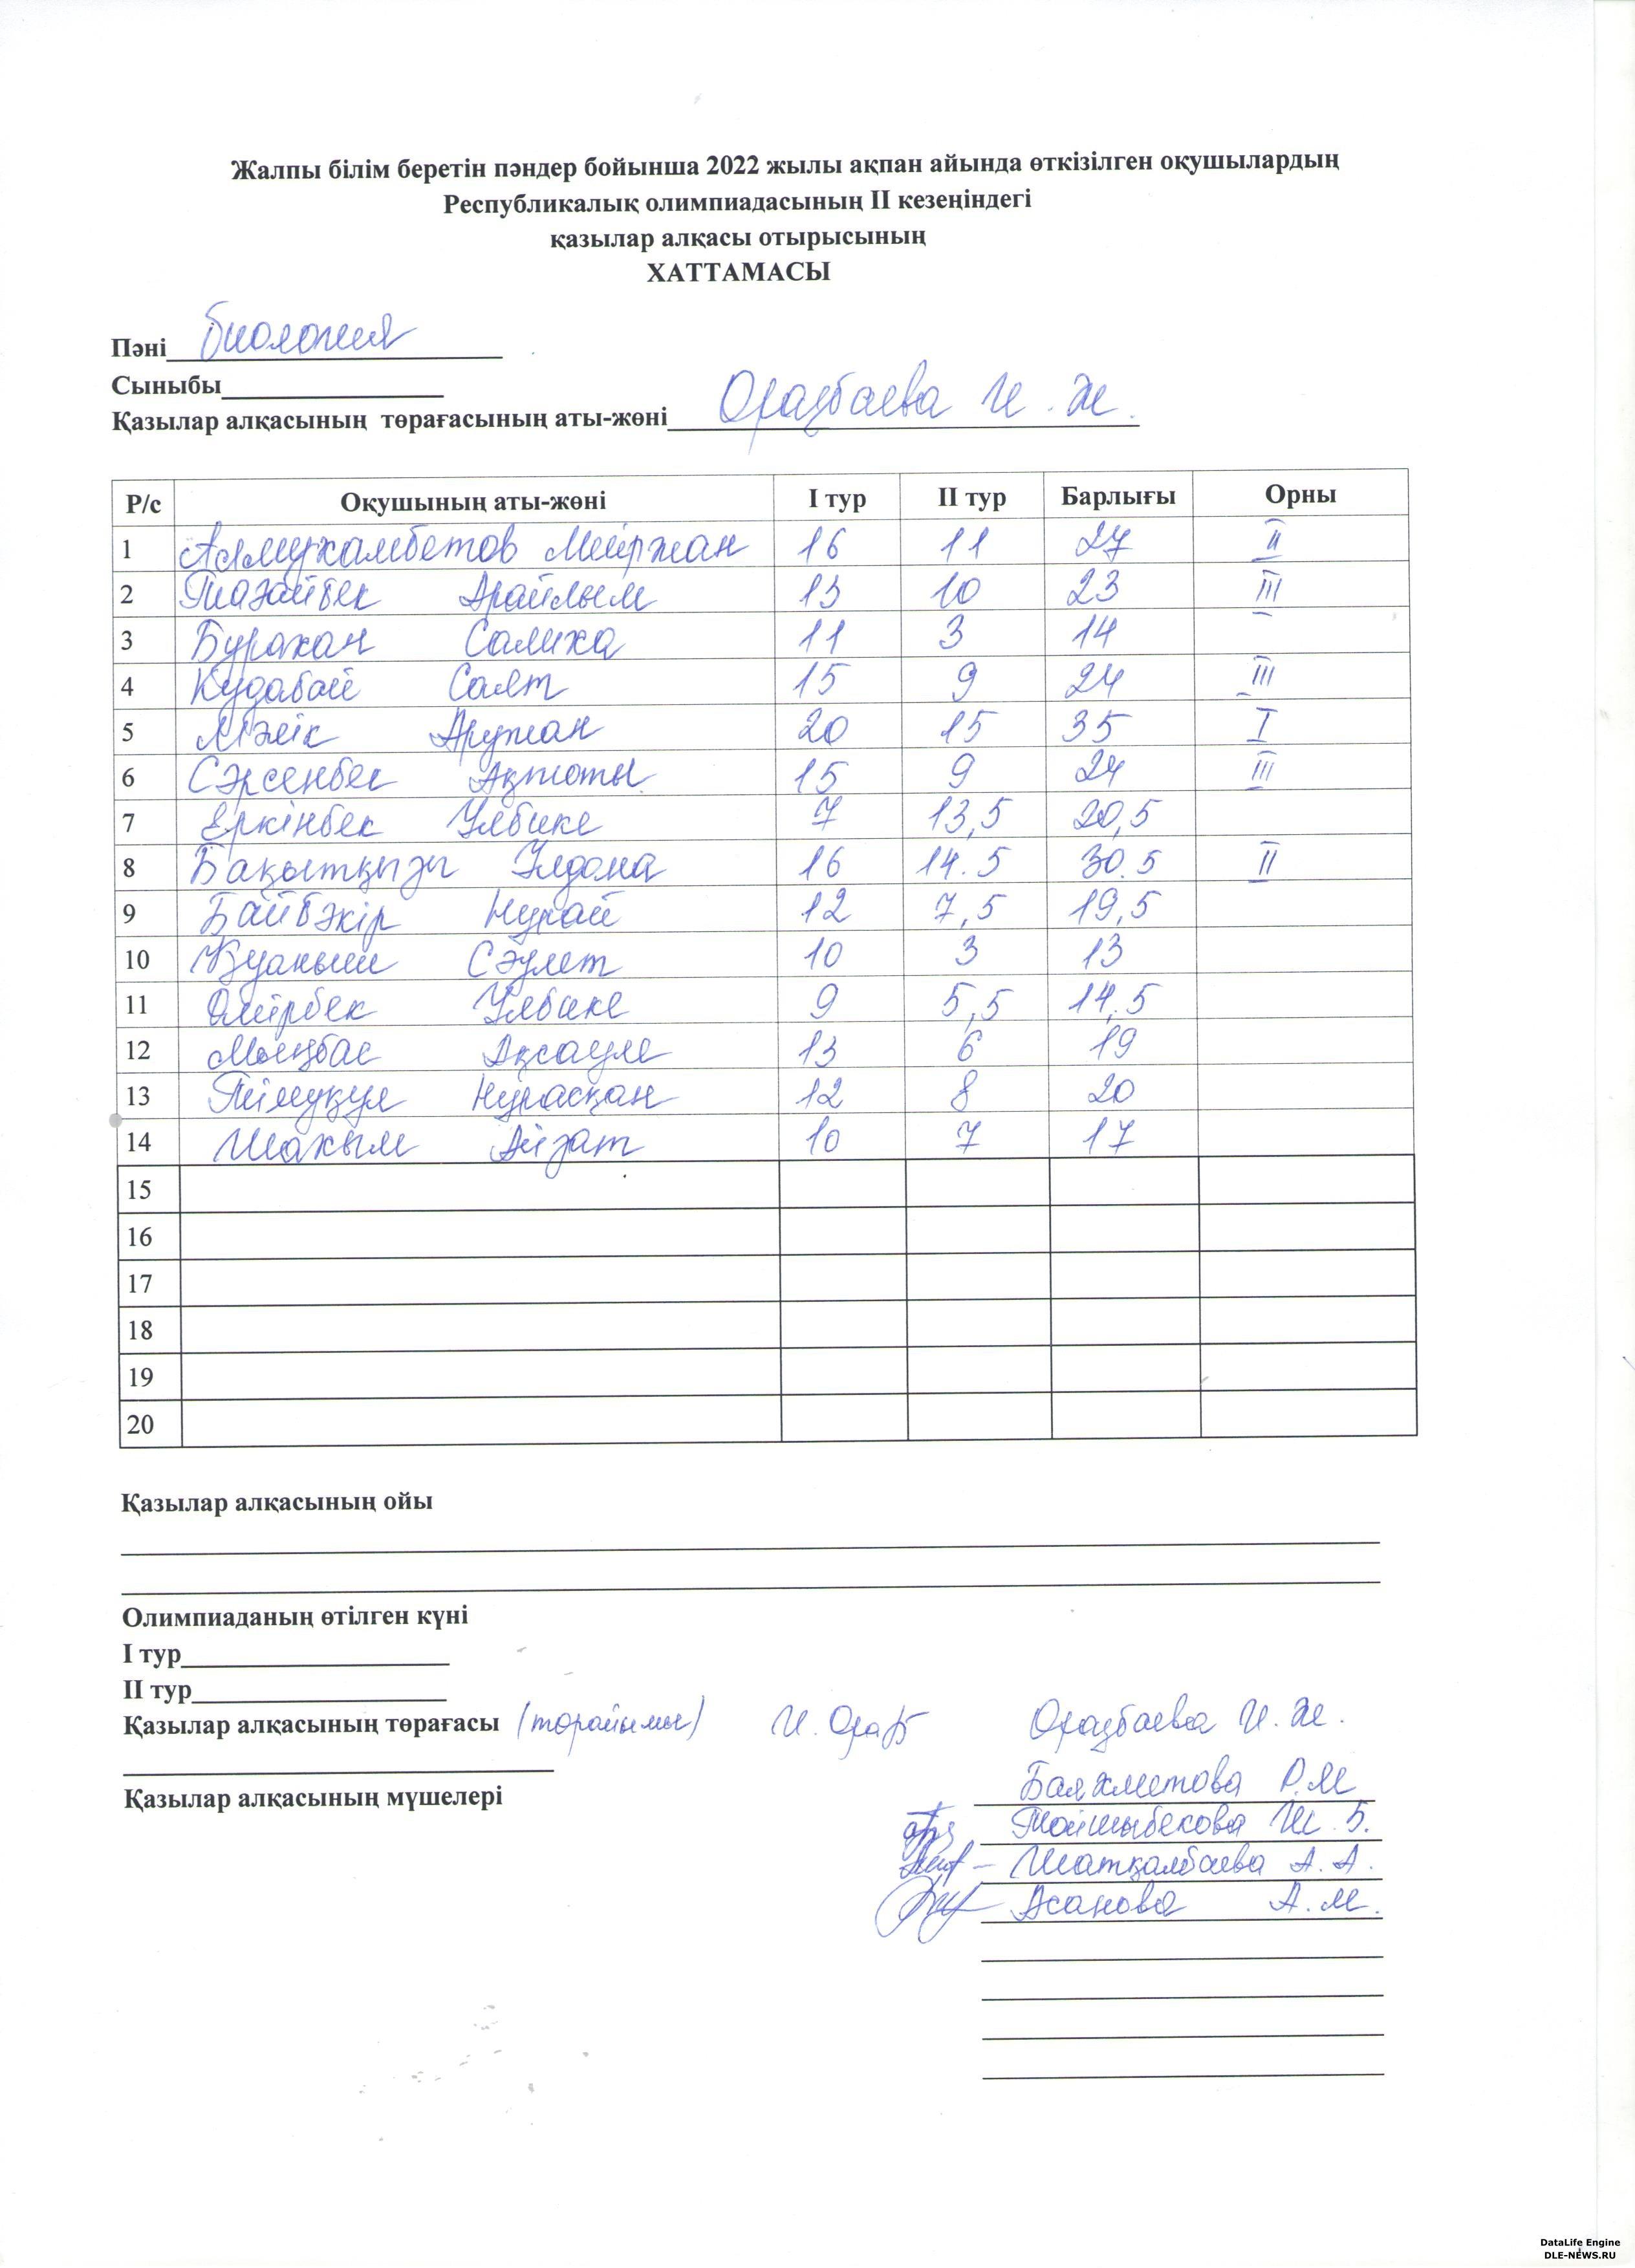 Жалпы білім беретін пәндер бойынша 2022 жылы ақпан айында өткізілген оқушылардың
Республикалық олимпиадасының ІІ кезеңіндегі
қазылар алқасы отырысының
ХАТТАМАСЫ
Пәні биология
Сыныбы
Қазылар алқасының төрағасының аты-жөні Оразбаева И. Ж.
Р/с Оқушының аты-жөні І тур ІІ тур Барлығы Орны
1 Алмухамбетов Мейржан 16 11 27 ІІ
2 Тазайбек Арайлым 13 10 23 ІІІ
3 Бурахан Салиха 11 3 14
4 Кудабай Саят 15 9 24 ІІІ
5 Мәлік Аружан 20 15 35 І
6 Сәрсенбек Ақтоты 15 9 24 ІІІ
7 Еркінбек Ұлбике 7 13,5 20,5
8 Бақытқызы Ұлдана 16 14.5 30.5 ІІ
9 Байбәкір Нұрай 12 7,5 19,5
10 Қуаныш Сәулет 10 3 13
11 Өмірбек Ұлбике 9 5,5 14,5
12 Мыңбас Ақсауле 13 6 19
13 Нұрасқан 12 8 20
14 Шахым Айзат 10 7 17
15
16
17
18
19
20
Қазылар алқасының ойы
Олимпиаданың өтілген күні
І тур
ІІ тур
Қазылар алқасының төрағасы (төрайымы) И. Ораз Оразбаева И. Ж.
Баяхметова Р.М
Қазылар алқасының мүшелері
Тойшыбекова Ш. Б.
Шатқалбаева А. А.
Асанова А. М.
DataLife Engine
DLE-NEWS.RU